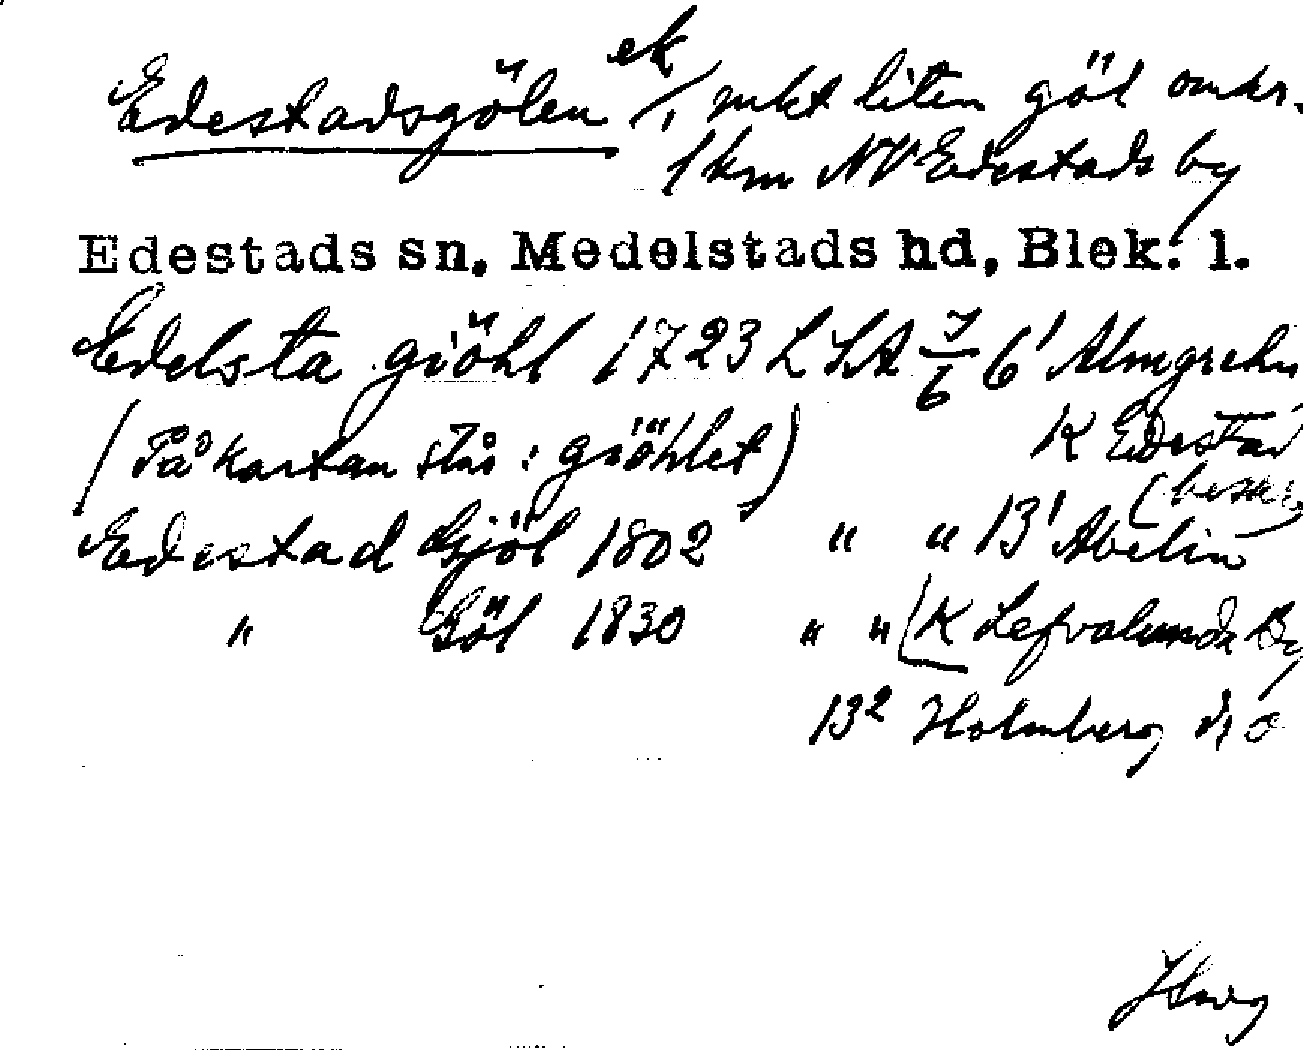 Edestadsgölen ek /, mkt liten göl omkr.
1 km NV Edestads by
Edestads sn, Medelstads hd, Blek. l.
Edelsta giöhl 1723 LSA 7/6 6¹ Almgrehn
(På kartan står: giöhlet) K Edestad
(beskr)
Edestad Gjöl 1802 " " 13¹ Abelin
" Göl 1830 " " (K Lefvalunda By
13² Holmberg